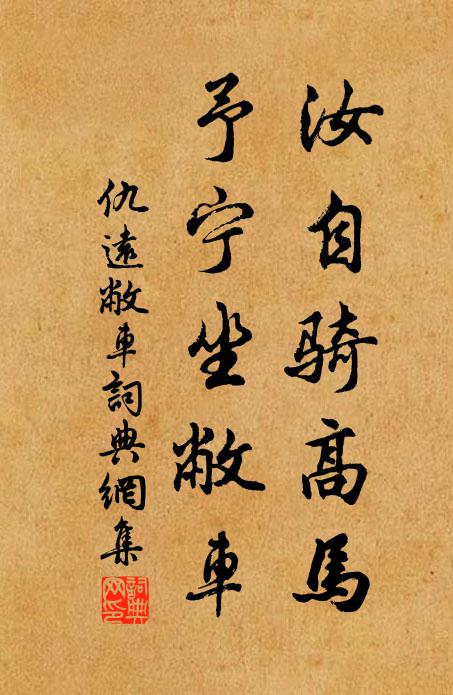 汝自骑高馬
予宁坐敝車
仇遠敝車詞典網集
詞典
网印